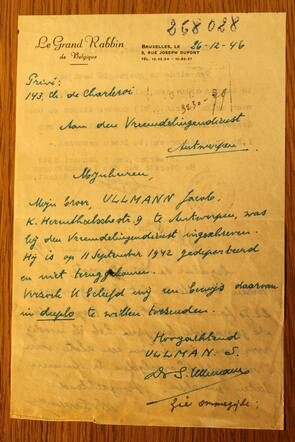 258028
Le Grand Rabbin
de Belgique
BRUXELLES, LE 26-12-46
2, RUE JOSEPH DUPONT
Privé:
143, Ch. de Charleroi
Aan den Vreemdelingendienst
Antwerpen.
Mijnheeren,
Mijn broer, ULLMANN Jacob,
K. Herenthalschestr 9 te Antwerpen, was
bij den Vreemdelingendienst ingeschreven.
Hij is op 11 September 1942 gedeporteerd
en niet teruggekomen.
Verzoek U beleefd mij een bewijs daarvan
in duplo te willen toezenden.
Hoogachtend
ULLMAN. S.
Dr S. Ullmann
Zie ommezijde: